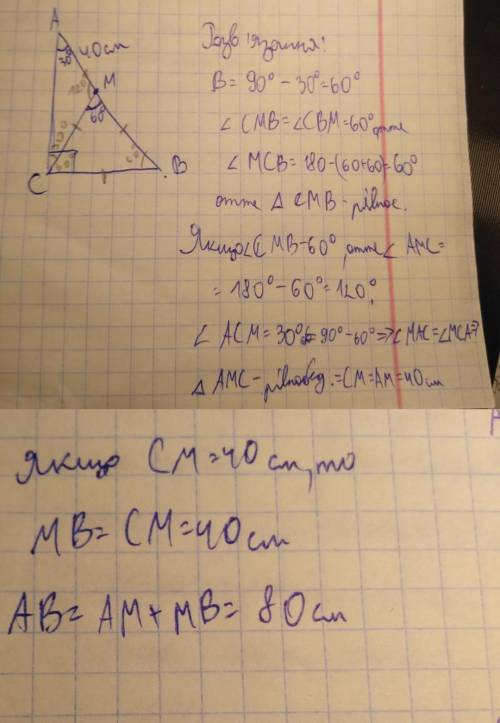 A
40см
30°
120°
M
60°
30°
60°
60°
C
B
Розв'язання:
B = 90° - 30° = 60°
∠ CMB = ∠CBM = 60° отже
∠ MCB = 180 - (60+60) = 60°
отже △ CMB - рівнос.
Якщо ∠CMB - 60°, отже ∠ AMC =
= 180° - 60° = 120°,
∠ ACM = 30° = 90° - 60° => ∠ MAC = ∠MCA =>
△ AMC - рівнобед. = CM = AM = 40 см
Якщо CM = 40 см, то
MB = CM = 40 см
AB = AM + MB = 80 см